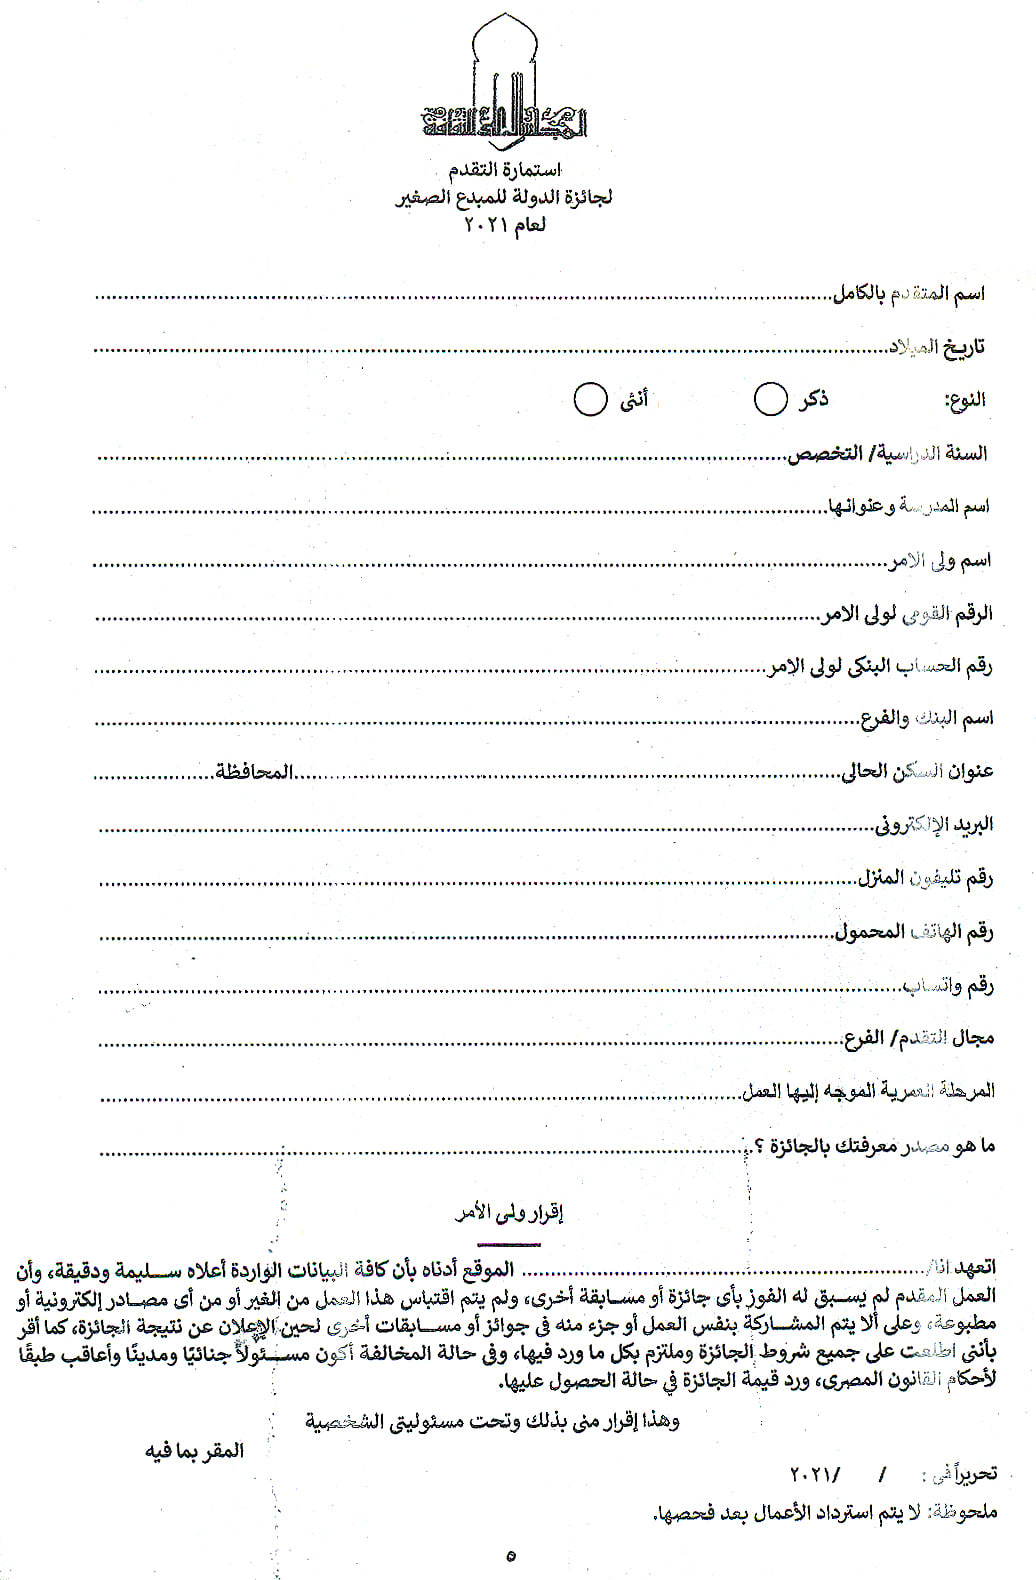 المجلس الأعلى للثقافة
استمارة التقدم
لجائزة الدولة للمبدع الصغير
لعام ٢٠٢١
اسم المتقدم بالكامل
تاريخ الميلاد
النوع: ذكر أنثى
السنة الدراسية/ التخصص
اسم المدرسة وعنوانها
اسم ولى الامر
الرقم القومى لولى الامر
رقم الحساب البنكى لولى الامر
اسم البنك والفرع
عنوان السكن الحالى المحافظة
البريد الإلكترونى
رقم تليفون المنزل
رقم الهاتف المحمول
رقم واتساب
مجال التقدم/ الفرع
المرحلة العمرية الموجه إليها العمل
ما هو مصدر معرفتك بالجائزة ؟
إقرار ولى الأمر
اتعهد انا/ الموقع أدناه بأن كافة البيانات الواردة أعلاه سليمة ودقيقة، وأن
العمل المقدم لم يسبق له الفوز بأى جائزة أو مسابقة أخرى، ولم يتم اقتباس هذا العمل من الغير أو من أى مصادر إلكترونية أو
مطبوعة، وعلى ألا يتم المشاركة بنفس العمل أو جزء منه فى جوائز أو مسابقات أخرى لحين الإعلان عن نتيجة الجائزة، كما أقر
بأننى اطلعت على جميع شروط الجائزة وملتزم بكل ما ورد فيها، وفى حالة المخالفة أكون مسئولاً جنائيًا ومدينًا وأعاقب طبقًا
لأحكام القانون المصرى، ورد قيمة الجائزة فى حالة الحصول عليها.
وهذا إقرار منى بذلك وتحت مسئوليتى الشخصية
المقر بما فيه
تحريراً فى : / /٢٠٢١
ملحوظة: لا يتم استرداد الأعمال بعد فحصها.
٥